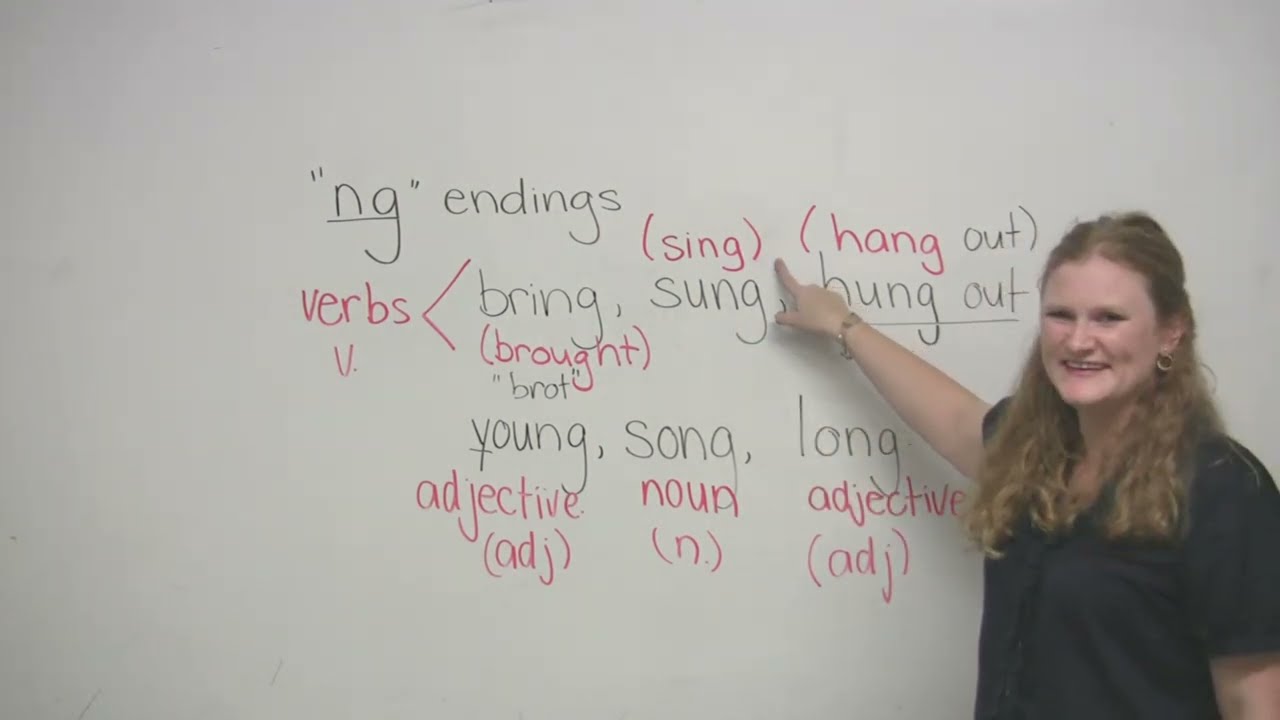 "ng" endings
(sing) (hang out)
verbs < bring, sung, hung out
v. (brought)
"brot"
young, song, long
adjective noun adjective
(adj) (n.) (adj)